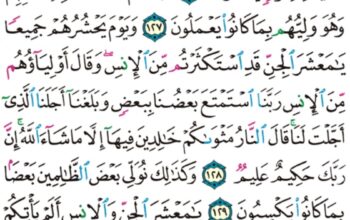 وَهُوَ وَلِيُّهُم بِمَا كَانُوا۟ يَعْمَلُونَ ١٢٧ وَيَوْمَ يَحْشُرُهُمْ جَمِيعًا
يَـٰمَعْشَرَ ٱلْجِنِّ قَدِ ٱسْتَكْثَرْتُم مِّنَ ٱلْإِنسِ ۖ وَقَالَ أَوْلِيَآؤُهُم
مِّنَ ٱلْإِنسِ رَبَّنَا ٱسْتَمْتَعَ بَعْضُنَا بِبَعْضٍ وَبَلَغْنَآ أَجَلَنَا ٱلَّذِىٓ
أَجَّلْتَ لَنَا ۚ قَالَ ٱلنَّارُ مَثْوَىٰكُمْ خَـٰلِدِينَ فِيهَآ إِلَّا مَا شَآءَ ٱللَّهُ ۗ إِنَّ
رَبَّكَ حَكِيمٌ عَلِيمٌ ١٢٨ وَكَذَٰلِكَ نُوَلِّى بَعْضَ ٱلظَّـٰلِمِينَ بَعْضًۢا
بِمَا كَانُوا۟ يَكْسِبُونَ ١٢٩ يَـٰمَعْشَرَ ٱلْجِنِّ وَٱلْإِنسِ أَلَمْ يَأْتِكُمْ